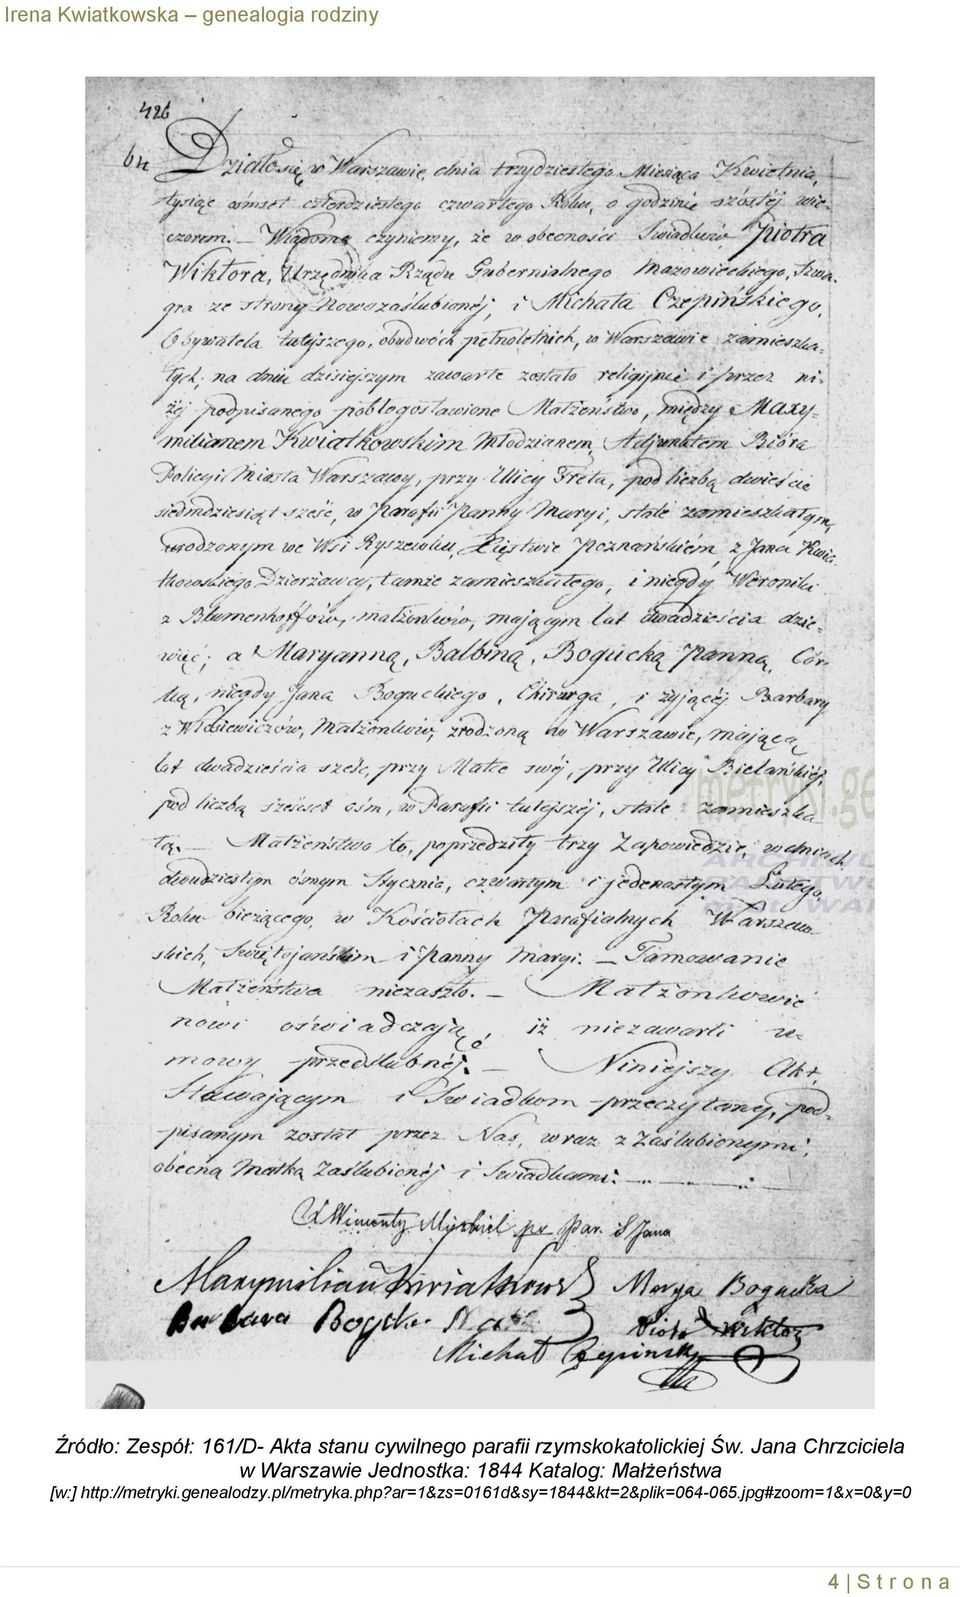 Irena Kwiatkowska – genealogia rodziny
426
64 Działo się w Warszawie, dnia trzydziestego Miesiąca Kwietnia,
tysiąc ośmset czterdziestego czwartego Roku, o godzinie szóstéj wie-
czorem. – Wiadomo czyniemy, że w obecności Swiadków Piotra
Wiktora, Urzędnika Rządu Gubernialnego Mazowieckiego, Szwa-
gra ze strony Nowozaślubionéj, i Michała Czepińskiego,
Obywatela tutejszego, obudwóch pełnoletnich, w Warszawie zamieszka-
łych; na dniu dzisiejszym zawarte zostało religijnie i przez ni-
żéj podpisanego pobłogosławione Małżeństwo, między Maxy-
milianem Kwiatkowskim Młodzianem, Adjunktem Bióra
Policyi Miasta Warszawy, przy Ulicy Freta, pod liczbą dwieście
siedmdziesiąt sześć, w Parafii Panny Maryi, stale zamieszkałym,
urodzonym we Wsi Ryszewku, Xięstwie Poznańskiém, z Jana Kwia-
tkowskiego Dzierżawcy, tamże zamieszkałego, i niegdy Weroniki
z Blumenhoffów, małżonków, mającym lat dwadzieścia dzie-
więć; a Maryanną, Balbiną, Bogucką Panną, Cór-
ką, niegdy Jana Boguckiego, Chirurga, i żyjącéj Barbary
z Włosiewiczów, Małżonków, zrodzoną w Warszawie, mającą
lat dwadzieścia sześć, przy Matce swéj, przy Ulicy Bielańskiéj,
pod liczbą sześćset ośm, w Parafii tutejszéj, stale zamieszka-
łą. – Małżeństwo to, poprzedziły trzy Zapowiedzie, w dniach
dwudziestym ósmym Stycznia, czwartym i jedenastym Lutego,
Roku bieżącego, w Kościołach Parafialnych Warszaw-
skich, Świętojańskim i Panny Maryi. – Tamowanie
Małżeństwa niezaszło. – Małżonkowie
nowi oświadczają, iż niezawarli u-
mowy przedślubnéj. – Niniejszy Akt,
Stawającym i Swiadkom przeczytany, pod-
pisanym został przez Nas, wraz z Zaślubionymi,
obecną Matką Zaślubionéj i Swiadkami.
X Wincenty pr Par. S Jana
Maxymilian Kwiatkowski Marya Bogucka
Barbara Piotr Wiktor
Michał Czepiński
metryki.ge
ARCHIWUM
PAŃSTWOWE
M.ST. WAR
Źródło: Zespół: 161/D- Akta stanu cywilnego parafii rzymskokatolickiej Św. Jana Chrzciciela
w Warszawie Jednostka: 1844 Katalog: Małżeństwa
[w:] http://metryki.genealodzy.pl/metryka.php?ar=1&zs=0161d&sy=1844&kt=2&plik=064-065.jpg#zoom=1&x=0&y=0
4 | Strona